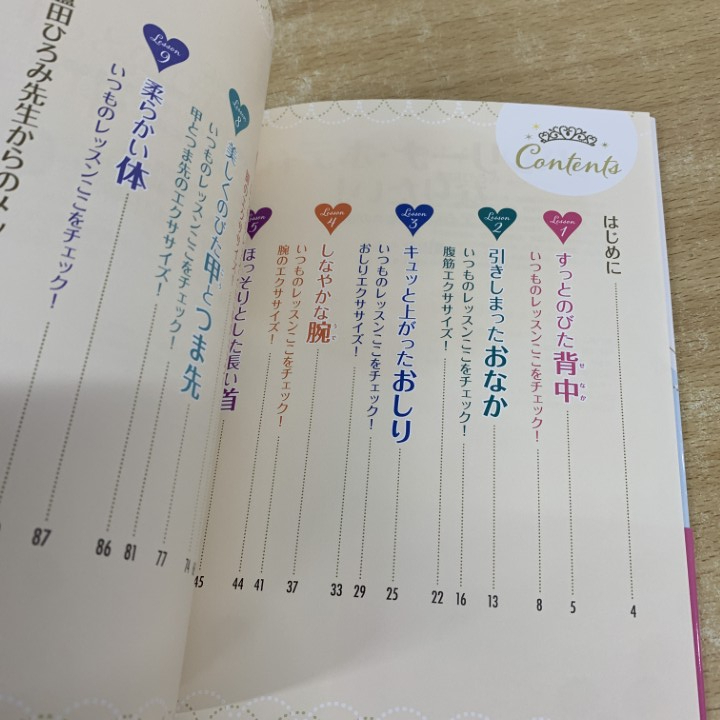 Contents
はじめに 4
Lesson 1
すっとのびた背中 5
せなか
いつものレッスンここをチェック！ 8
Lesson 2
引きしまったおなか 13
いつものレッスンここをチェック！ 16
腹筋エクササイズ！ 22
Lesson 3
キュッと上がったおしり 25
いつものレッスンここをチェック！ 29
おしりエクササイズ！ 33
Lesson 4
しなやかな腕 37
うで
いつものレッスンここをチェック！ 41
腕のエクササイズ！ 44
5
ほっそりとした長い首 45
美しくのびた甲とつま先 74
いつものレッスンここをチェック！ 77
甲とつま先のエクササイズ！ 81
Lesson 9
柔らかい体 86
いつものレッスンここをチェック！ 87
田ひろみ先生からのメッ